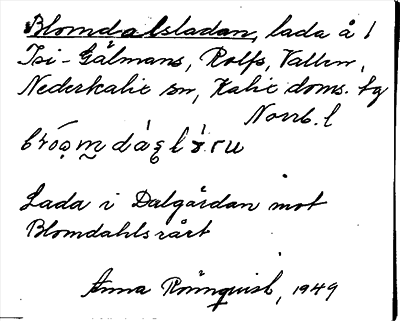 Blomdalsladan, lada å 1
Isi-Gålmans, Rolfs, Vallen,
Nederkalix sn, Kalix doms. tg
Norrb. l
Lada i Dalgårdan mot
Blomdahlsrået
Anna Rönnqvist, 1949